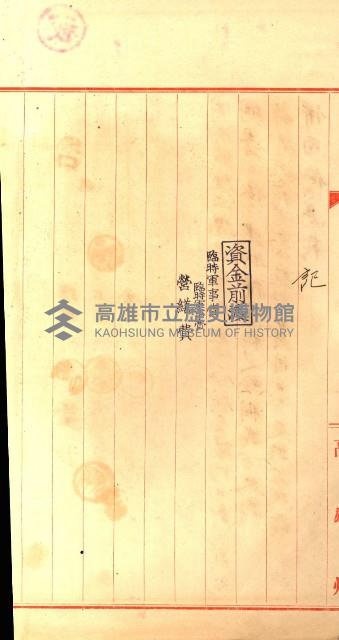 記
資金前渡
臨時軍事費
臨時軍事費
營繕費
高雄州
高雄市立歷史博物館
KAOHSIUNG MUSEUM OF HISTORY